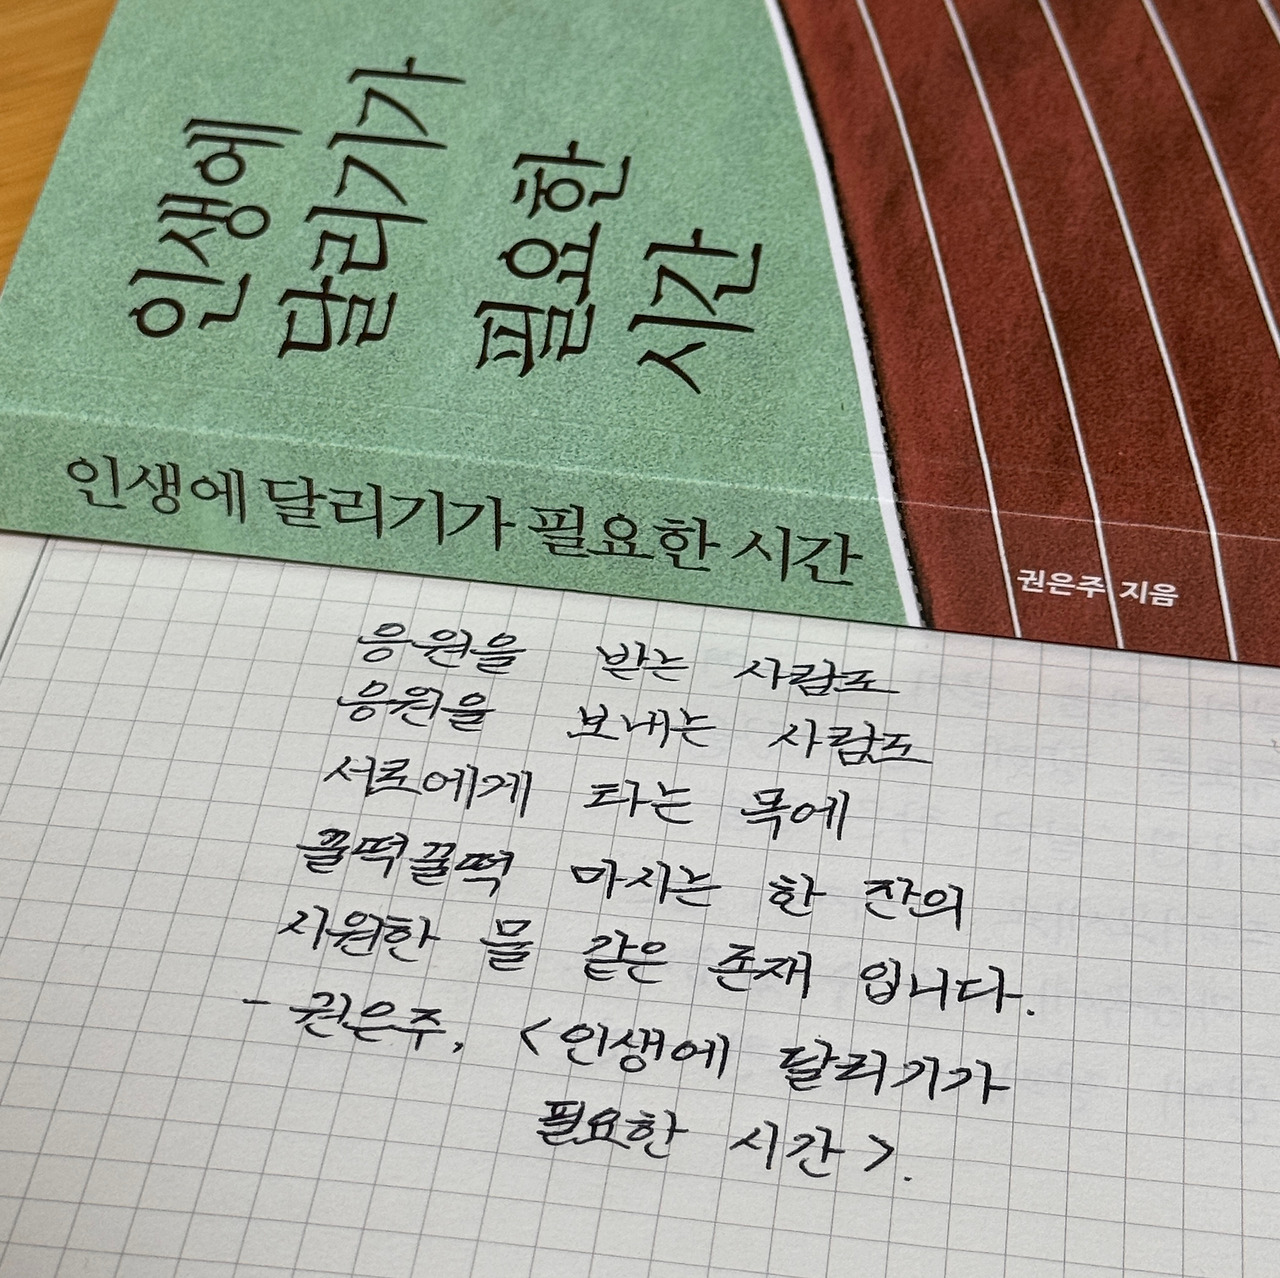 인생에
달리기가
필요한
시간
인생에 달리기가 필요한 시간
권은주 지음
응원을 받는 사람도
응원을 보내는 사람도
서로에게 타는 목에
꿀떡꿀떡 마시는 한 잔의
시원한 물 같은 존재 입니다.
- 권은주, <인생에 달리기가
필요한 시간>.